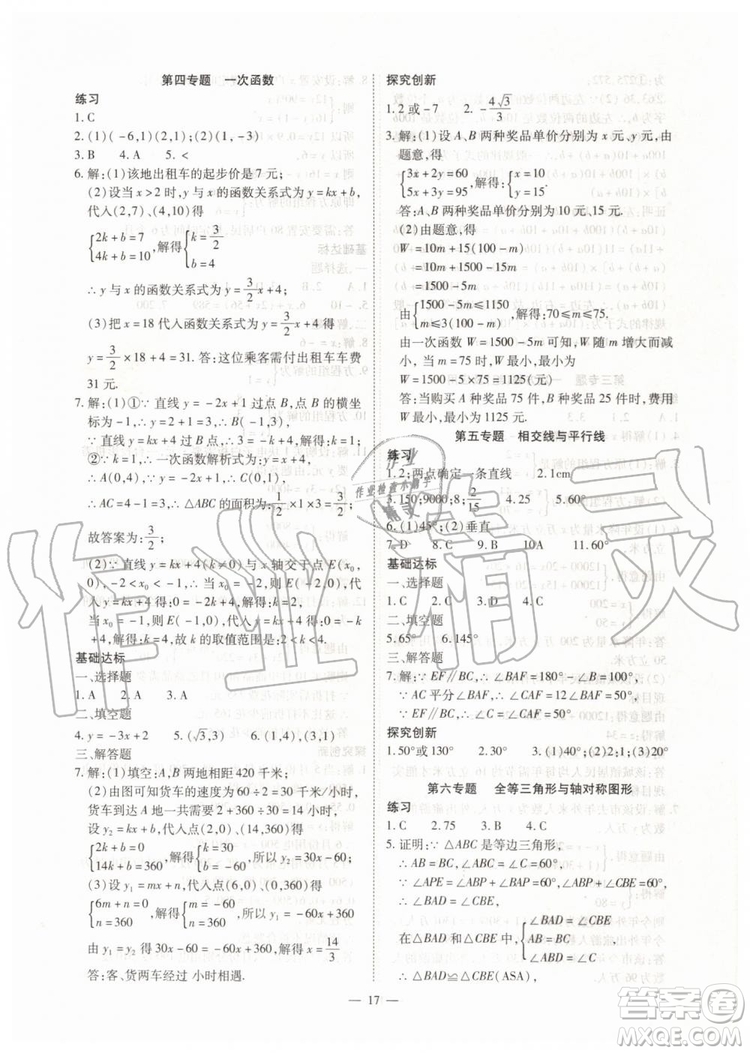 第四专题　一次函数
练习
1. C
2. (1)(-6,1)(2)(1,-3)
3. B　4. A　5. <
6. 解:(1)该地出租车的起步价是 7 元;
(2)设当 x>2 时,y 与 x 的函数关系式为 y=kx+b,
代入(2,7)、(4,10)得
{2k+b=7, 4k+b=10,解得{k=3/2 b=4
∴y 与 x 的函数关系式为 y=3/2x+4;
(3)把 x=18 代入函数关系式为 y=3/2x+4 得
y=3/2×18+4=31. 答:这位乘客需付出租车车费
31 元.
7. 解:(1)①∵直线 y=-2x+1 过点 B,点 B 的横坐
标为-1,∴y=2+1=3,∴B(-1,3),
∵直线 y=kx+4 过 B 点,∴3=-k+4,解得:k=1,
②∵k=1,∴一次函数解析式为:y=x+4,
∴A(0,4),∵y=-2x+1,∴C(0,1),
∴AC=4-1=3,∴△ABC 的面积为:1/2×1×3=3/2,
故答案为:3/2;
(2)∵直线 y=kx+4(k≠0)与 x 轴交于点 E(x₀,0),
-2<x₀<-1,∴当 x₀=-2,则 E(-2,0),
代入 y=kx+4 得:0=-2k+4,解得:k=2,
当 x₀=-1,则 E(-1,0),代入 y=kx+4 得:0=-k+4,
解得:k=4,故 k 的取值范围是:2<k<4.
基础达标
一、选择题
1. A　2. A　3. A
二、填空题
4. y=-3x+2　5. (√3,3)　6. (1,4),(3,1)
三、解答题
7. 解:(1)填空:A,B 两地相距 420 千米;
由图可知货车的速度为 60÷2=30 千米/小时,
货车到达 A 地一共需要 2+360÷30=14 小时.
设 y₂=kx+b,代入点(2,0)、(14,360)得
{2k+b=0 14k+b=360,解得{k=30 b=-60,所以 y₂=30x-60;
(3)设 y₁=mx+n,代入点(6,0)、(0,360)得
{6m+n=0 n=360,解得{m=-60 n=360,所以 y₁=-60x+360
由 y₁=y₂ 得 30x-60=-60x+360,解得 x=14/3
答:客、货两车经过 小时相遇.
探究创新
1. 2 或 -7　2. -4√3/3
3. 解:(1)设 A、B 两种奖品单价分别为 x 元、y 元,由
题意,得
{3x+2y=60 5x+3y=95,解得:{x=10 y=15.
答:A、B 两种奖品单价分别为 10 元、15 元.
(2)由题意,得
W=10m+15(100-m)
=10m+1500-15m
=1500-5m
由{1500-5m≤1150 m≤3(100-m),解得:70≤m≤75.
由一次函数 W=1500-5m 可知,W 随 m 增大而
减小,∴当 m=75 时,W 最小,
最小为 W=1500-5×75=1125(元)
答:当购买 A 种奖品 75 件,B 种奖品 25 件时,费用
W 最小,最小为 1125 元.
第五专题　相交线与平行线
练习
1. 2;两点确定一条直线　2. 1cm
3. 150;9000;8;2/15　4. 25　5. 60°
6. (1)45°;(2)垂直
7. D　8. C　9. B　10A　11. 60°
基础达标
一、选择题
1. C　2. C　3. A　4. C
二、填空题
5. 65°　6. 145°
三、解答题
7. 解:∵EF∥BC,∴∠BAF=180°-∠B=100°,
∵AC 平分∠BAF,∴∠CAF=1/2∠BAF=50°,
∵EF∥BC,∴∠C=∠CAF=50°.
探究创新
1. 50°或 130°　2. 30°　3. (1)40°;(2)1;(3)20°
第六专题　全等三角形与轴对称图形
练习
1. C　2. 75　3. B　4. C
5. 证明:∵△ABC 是等边三角形,
∴∠A=∠ABC=∠C=60°,AB=BC,
∵∠APE=∠ABP+∠BAP=60°,
∠ABC=∠ABP+∠CBE=60°,
∴∠BAD=∠CBE,
在△BAD 和△CBE 中,{∠BAD=∠CBE AB=BC ∠ABD=∠C,
∴△BAD≌△CBE(ASA),
— 17 —
作业精灵
作业检查小帮手
答案圈